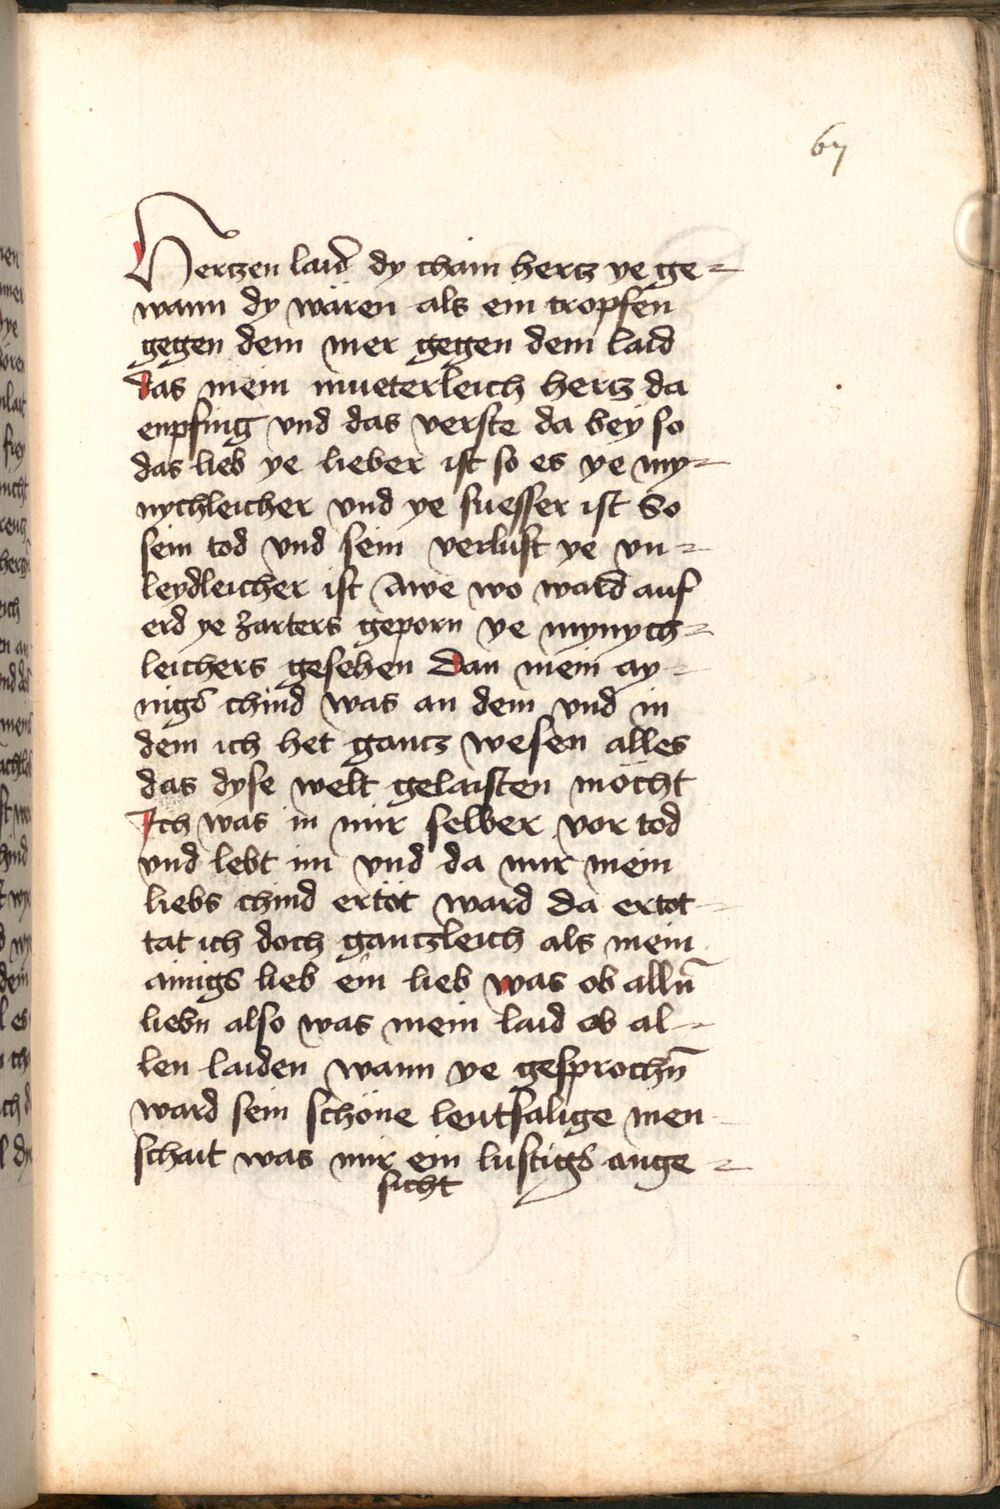 67
Hertzen laid dy cham hertz ye ge=
wann dy wären als ein tropfen
gegen dem mer gegen dem laid
das mein mueterleich hertz da
enpfing vnd das verste da bey so
das lieb ye lieber ist so es ye my=
nychleicher vnd ye suesser ist So
sein tod vnd sein verlust ye vn=
leydleicher ist Awe wo ward auf
erd ye zarters geporn ye mynych=
leichers gesehen Dan mein ay=
nigs chind was an dem vnd in
dem ich het gantz wesen alles
das dyse welt gelaisten möcht
Ich was in mir selber vor tod
vnd lebt im vnd da mir mein
liebs chind ertöt ward da ertot=
tat ich doch gantzleich als mein
ainigs lieb ein lieb was ob alln̄
liebn also was mein laid ob al=
len laiden wann ye gesprochn̄
ward sein schöne leutsalige men
schait was mir ein lustigs ange=
sicht